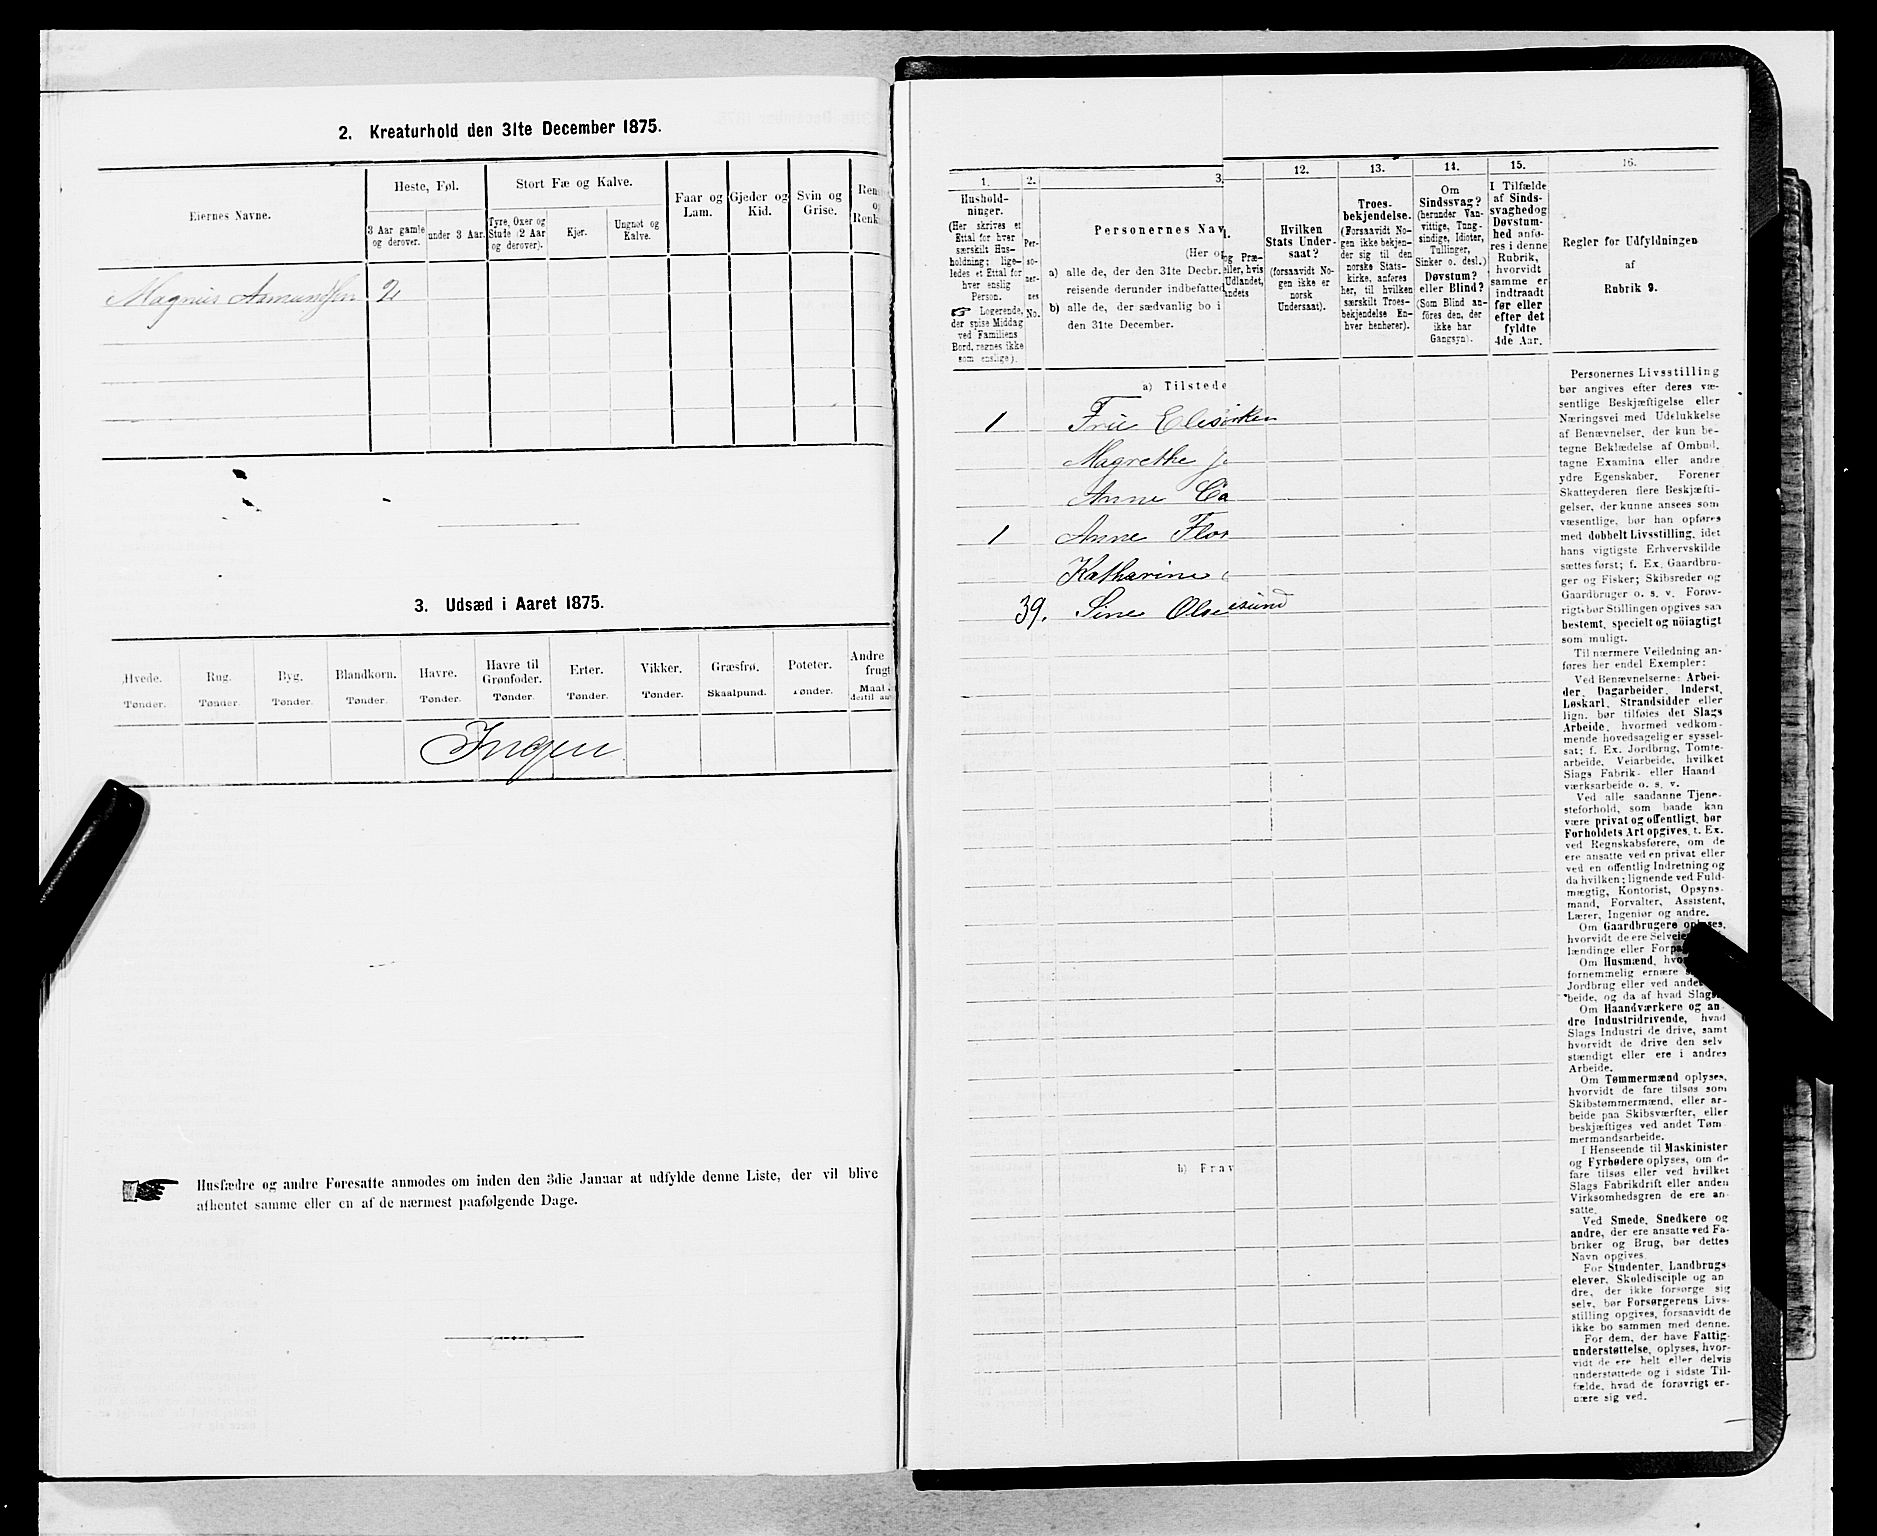 2. Kreaturhold den 31te December 1875.
Eiernes Navne.
Heste, Føl.
3 Aar gamle og derover.
under 3 Aar.
Stort Fæ og Kalve.
Tyre, Oxer og Stude (2 Aar og derover).
Kjør.
Ungnøt og Kalve.
Faar og Lam.
Gjeder og Kid.
Svin og Grise.
Magnus Asmundsen 2
3. Udsæd i Aaret 1875.
Hvede. Rug. Byg. Blandkorn. Havre. Havre til Grønfoder. Erter. Vikker. Græsfrø. Poteter. Andre
Tønder. Tønder. Tønder. Tønder. Tønder. Tønder. Tønder. Tønder. Skaalpund. Tønder. Maal
Ingen
Husfædre og andre Foresatte anmodes om inden den 3die Januar at udfylde denne Liste, der vil blive
afhentet samme eller en af de nærmest paafølgende Dage.
1.
Hushold-
ninger.
(Her skrives et
Ettal for hver
særskilt Hus-
holdning; lige-
ledes et Ettal for
hver enslig
Person.
☞ Logerende,
der spise Middag
ved Familiens
Bord, regnes ikke
som enslige).
2.
Per-
so-
ner-
nes
No.
3.
Personernes Nav
(Her
a) alle de, der den 31te Decbr.
reisende derunder indbefattede
b) alle de, der sædvanlig bo i
den 31te December.
12.
Hvilken
Stats Under-
saat?
(forsaavidt No-
gen ikke er
norsk
Undersaat).
13.
Troes-
bekjendelse.
(Forsaavidt No-
gen ikke bekjen-
der sig til den
norske Stats-
kirke, anføres
her, til hvilken
særskilt Troes-
bekjendelse En-
hver henhører).
14.
Om
Sindssvag?
(herunder Van-
vittige, Tung-
sindige, Idioter,
Tullinger,
Sinker o. desl.)
Døvstum?
eller Blind?
(Som Blind an-
føres den, der
ikke har
Gangsyn).
15.
I Tilfælde
af Sinds-
svaghed og
Døvstum-
hed anfø-
res i denne
Rubrik,
hvorvidt
samme er
indtraadt
før eller
efter det
fyldte
4de Aar.
16.
Regler for Udfyldningen
af
Rubrik 9.
a) Tilstede
1
Magrethe
Anne Ca
1 Anne Flor
Katharine
39. Sine Olse
esund
b) Frav
Personernes Livsstilling
bør angives efter deres væ-
sentlige Beskjæftigelse eller
Næringsvei med Udelukkelse
af Benævnelser, der kun be-
tegne Beklædelse af Ombud,
tagne Examina eller andre
ydre Egenskaber. Forener
Skatteyderen flere Beskjæfti-
gelser, der kunne ansees som
væsentlige, bør han opføres
med dobbelt Livsstilling, idet
hans vigtigste Erhvervskilde
sættes først; f. Ex. Gaardbru-
ger og Fisker; Skibsreder og
Gaardbruger o. s. v. Forøv-
rigt bør Stillingen opgives saa
bestemt, specielt og nöiagtigt
som muligt.
Til nærmere Veiledning an-
føres her endel Exempler:
Ved Benævnelserne: Arbei-
der, Dagarbeider, Inderst,
Løskarl, Strandsidder eller
lign. bør tilføies det Slags
Arbeide, hvormed vedkom-
mende hovedsagelig er syssel-
sat; f. Ex. Jordbrug, Tomte-
arbeide, Veiarbeide, hvilket
Slags Fabrik- eller Haand
værksarbeide o. s. v.
Ved alle saadanne Tjene-
steforhold, som baade kan
være privat og offentligt, bør
Forholdets Art opgives, t. Ex.
ved Regnskabsførere, om de
ere ansatte ved en privat eller
ved en offentlig Indretning og
da hvilken; lignende ved Fuld-
mægtig, Kontorist, Opsyns-
mand, Forvalter, Assistent,
Lærer, Ingeniør og andre.
Om Gaardbrugere oplyses,
hvorvidt de ere
lændinge eller
Om Husmænd,
fornemmelig ernære
Jordbrug eller ved andet
beide, og da af hvad Slags.
Om Haandværkere og an-
dre Industridrivende, hvad
Slags Industri de drive, samt
hvorvidt de drive den selv
stændigt eller ere i andres
Arbeide.
Om Tømmermænd oplyses,
hvorvidt de fare tilsøs som
Skibstømmermænd, eller ar-
beide paa Skibsværfter, eller
beskjæftiges ved andet Tøm
mermandsarbeide.
I Henseende til Maskinister
og Fyrbødere oplyses, om de
fare tilsøs eller ved hvilket
Slags Fabrikdrift eller anden
Virksomhedsgren de ere an-
satte.
Ved Smede, Snedkere og
andre, der ere ansatte ved Fa-
briker og Brug, bør dettes
Navn opgives.
For Studenter, Landbrugs-
elever, Skoledisciple og an
dre, der ikke forsørge sig
selv, bør Forsørgerens Livs-
stilling opgives, forsaavidt de
ikke bo sammen med denne.
For dem, der have Fattig-
understøttelse, oplyses, hvor-
vidt de ere helt eller delvis
understøttede og i sidste Til-
fælde, hvad de forøvrigt er-
nære sig ved.